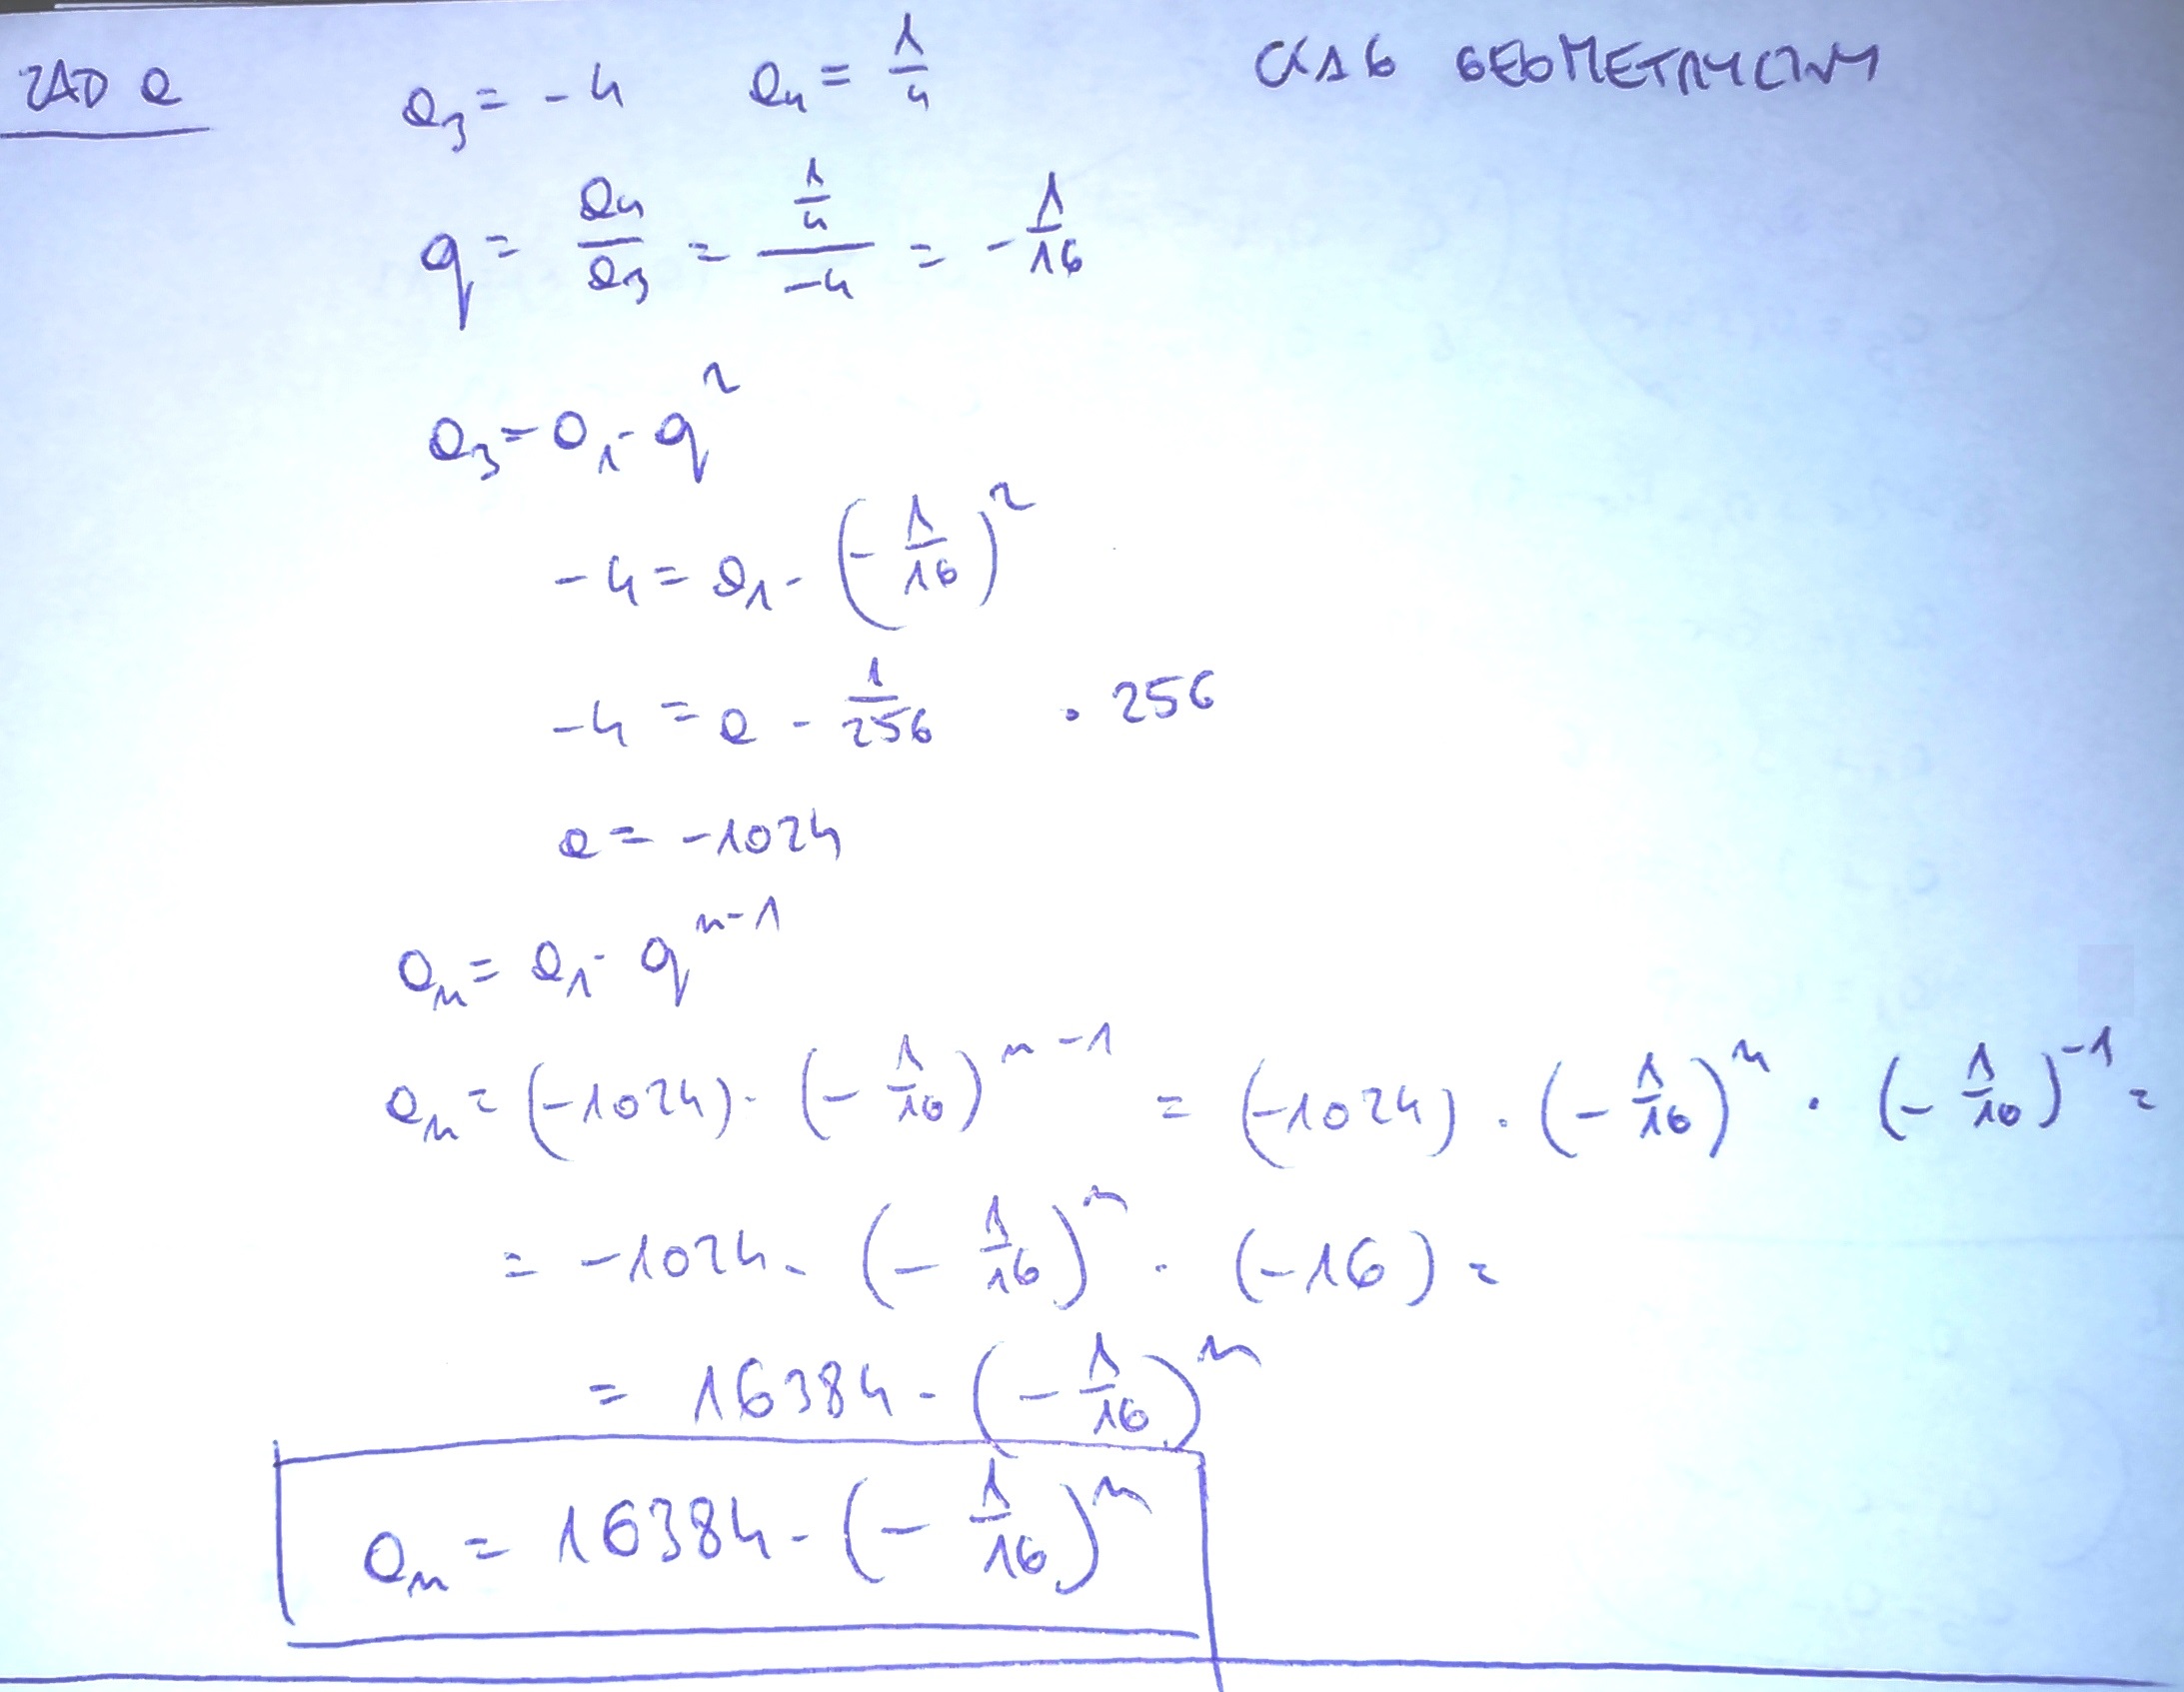 ZAD 2 a₃ = -4 a₄ = 1/4 CIĄG GEOMETRYCZNY
q = a₄/a₃ = (1/4)/(-4) = -1/16
a₃ = a₁ · q²
-4 = a₁ · (-1/16)²
-4 = a · 1/256 · 256
a = -1024
aₙ = a₁ · qⁿ⁻¹
aₙ = (-1024) · (-1/16)ⁿ⁻¹ = (-1024) · (-1/16)ⁿ · (-1/16)⁻¹ =
= -1024 · (-1/16)ⁿ · (-16) =
= 16384 · (-1/16)ⁿ
aₙ = 16384 · (-1/16)ⁿ